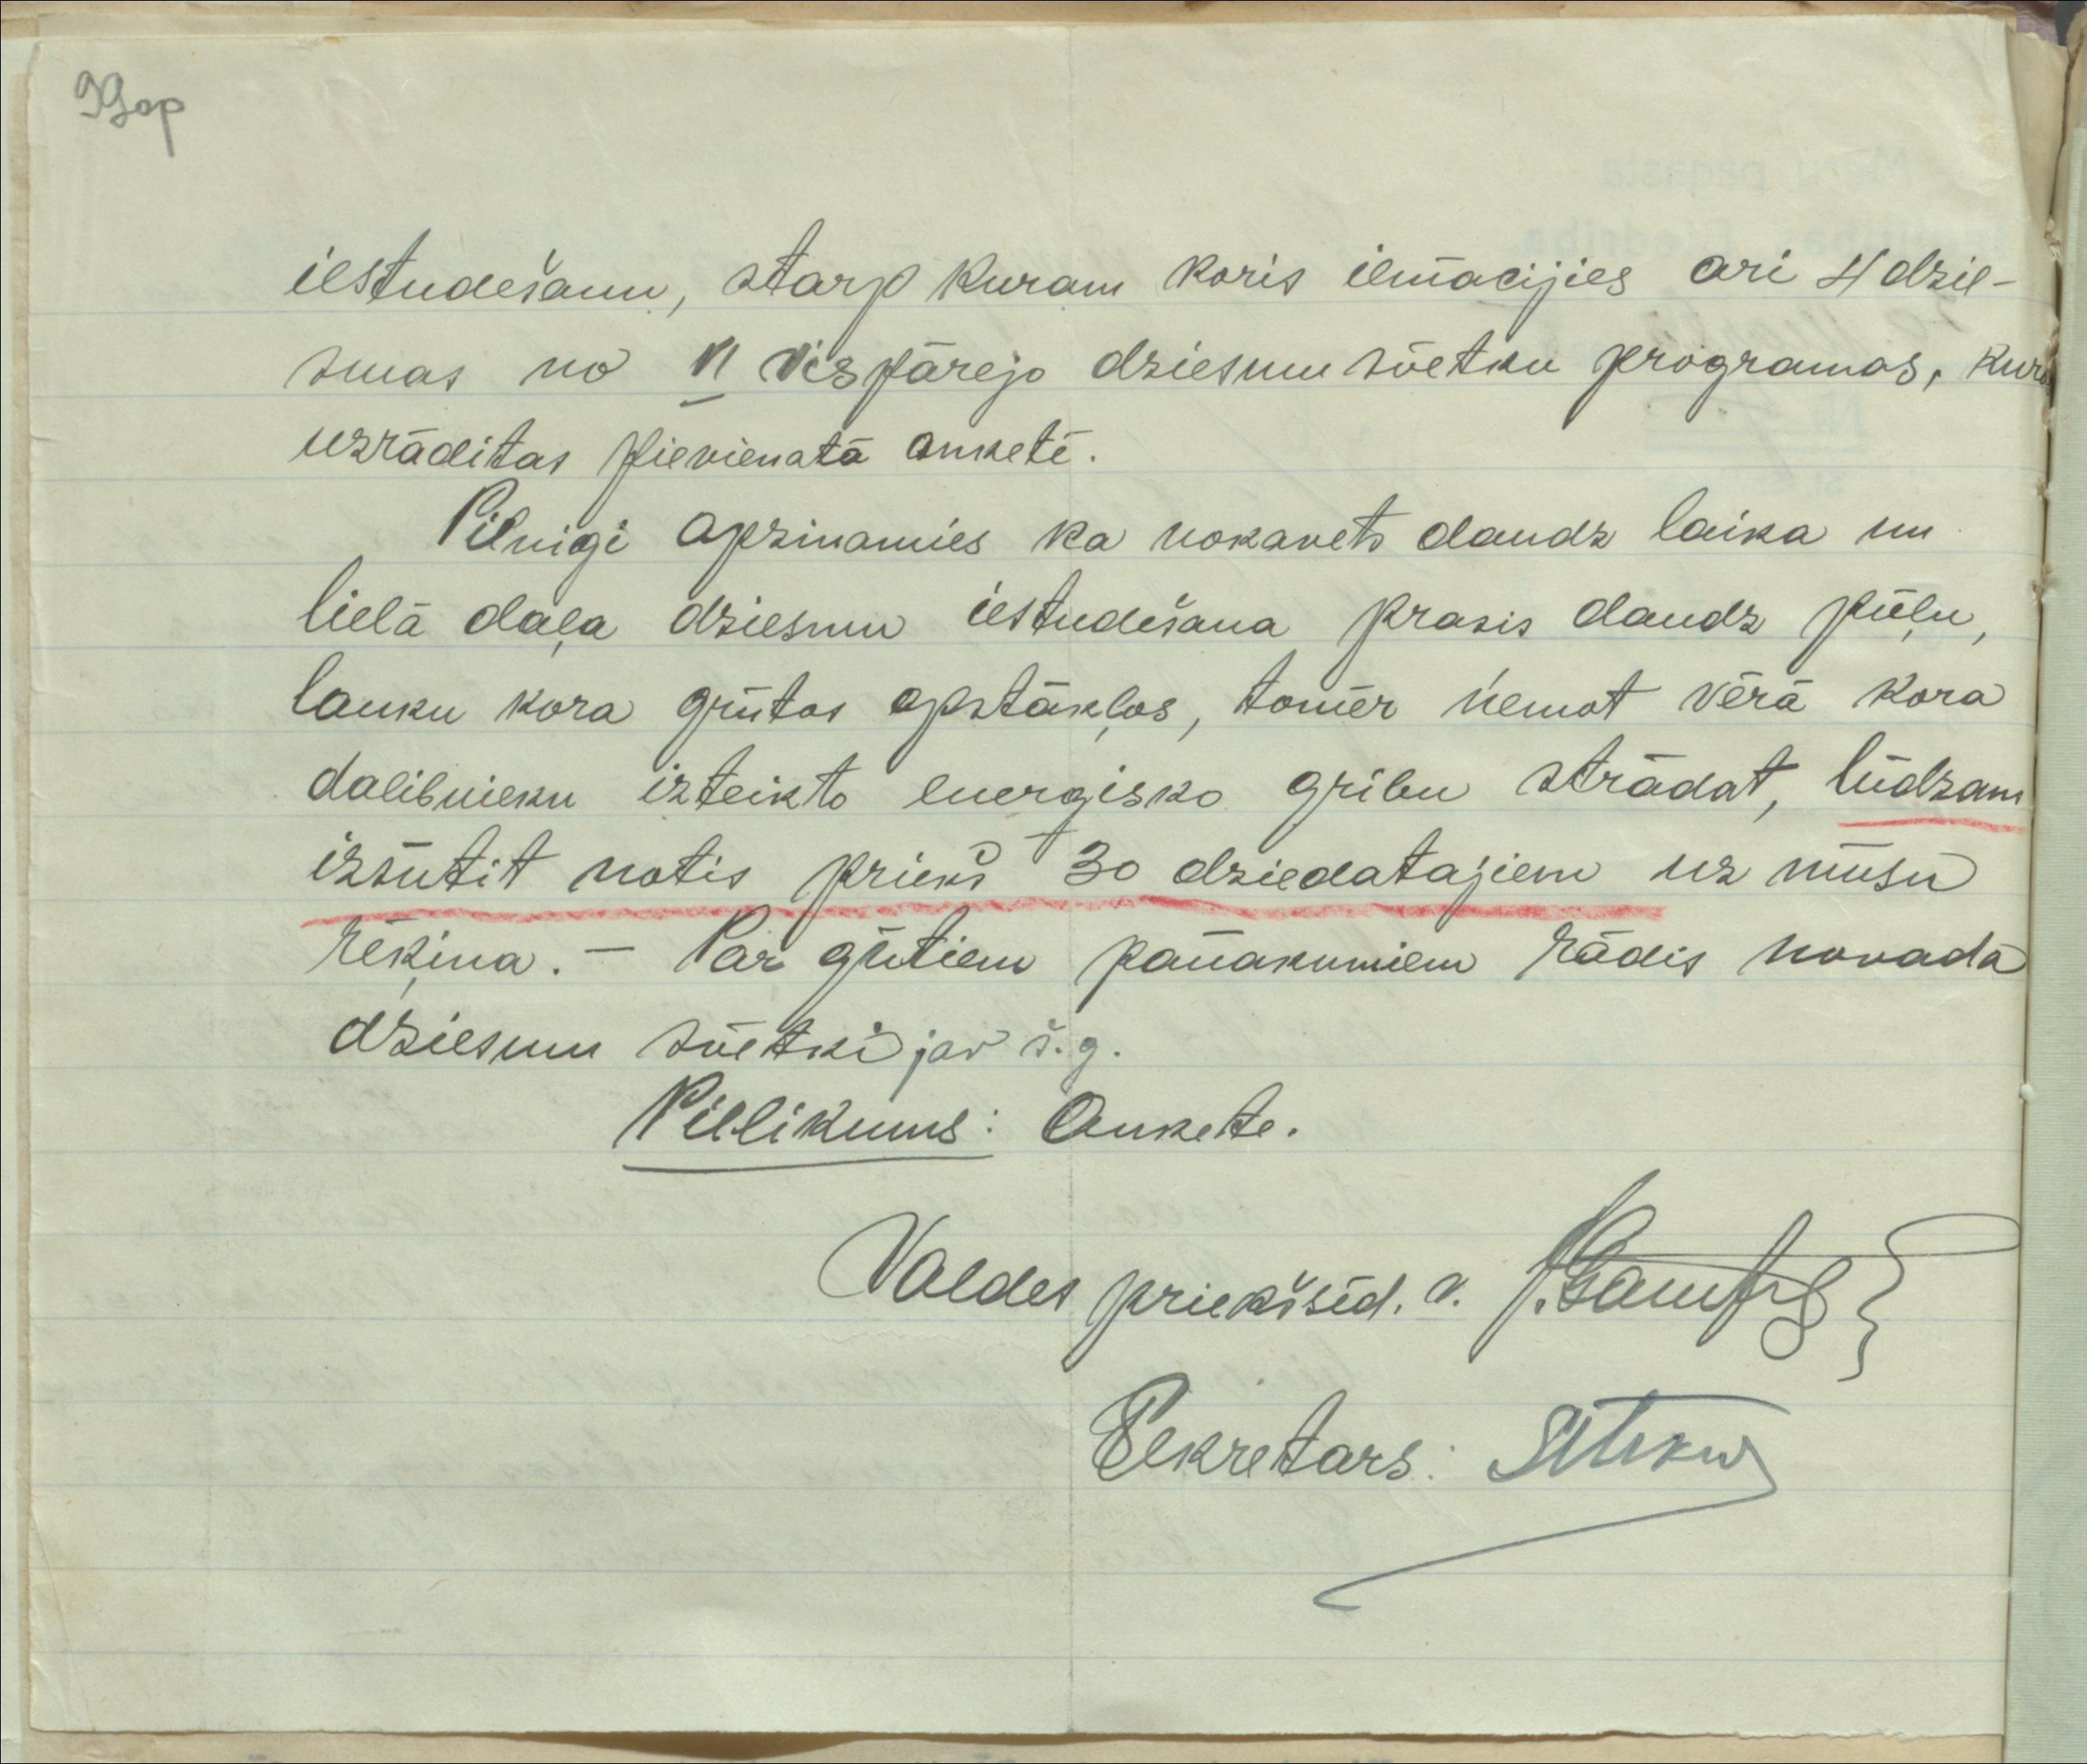 99op
iestudešanu, starp kuram koris iemācijies ari 4 dzie-
smas no VI Vispārejo dziesmu svētku programas, kuras
uzrāditas pievienatā anketē.
Pilnigi apzinamies ka nokavets daudz laika un
lielā daļa dziesmu iestudēšana prasis daudz pūļu,
lauku kora grūtos apstākļos, tomēr ņemot vērā kora
dalibnieku izteikto energisko gribu strādat, lūdzam
izsūtit notis priekš 30 dziedatajiem uz mūsu
rēķina. — Par gūtiem panākumiem rādis novada
dziesmu svētki jav š.g.
Pielikums: Ankete.
Valdes priekšsēd. v.
Sekretars: